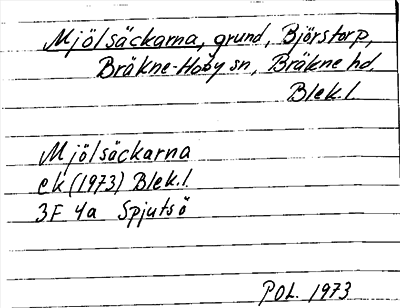 Mjölsäckarna, grund, Björstorp,
Bräkne-Hoby sn, Bräkne hd,
Blek. l.
Mjölsäckarna
ek (1973) Blek. l.
3F 4a Spjutsö
POL. 1973